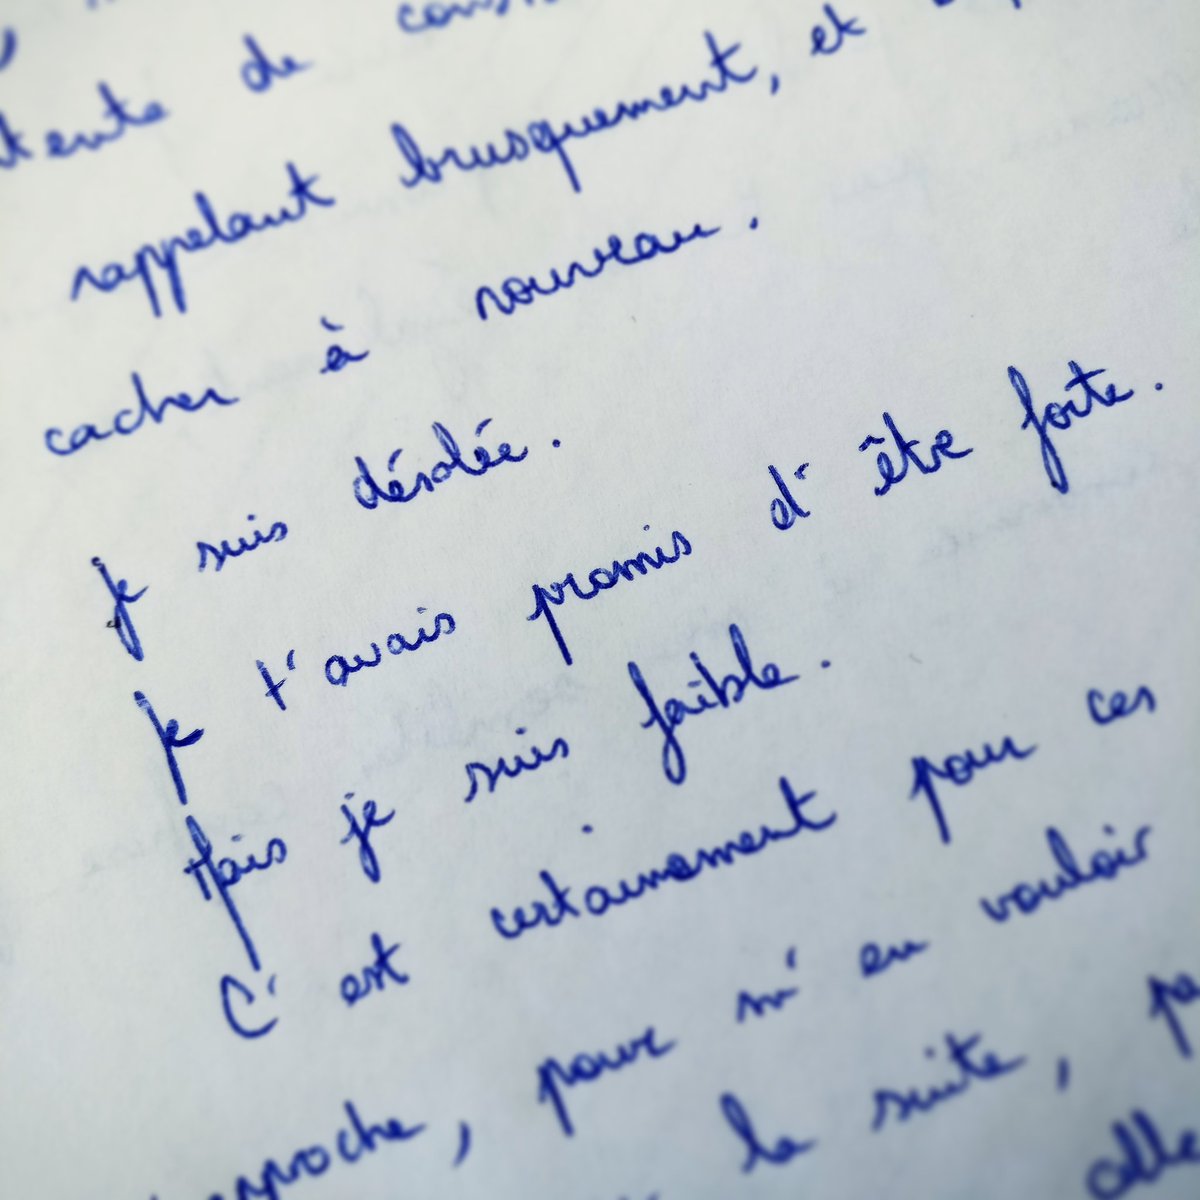 de
rappelant brusquement, et
cacher à nouveau.
Je suis désolée.
Je t'avais promis d'être forte.
Mais je suis faible.
C'est certainement pour ces
pour m'en vouloir
la suite,